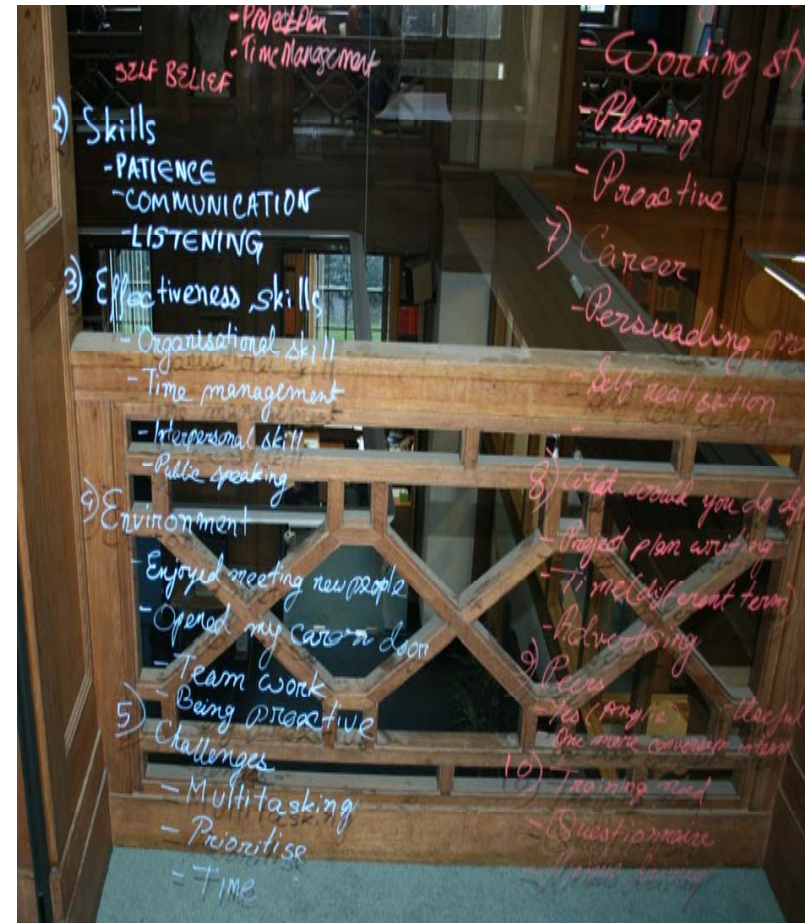 - Project Plan
- Time Management
SELF BELIEF
2) Skills
- PATIENCE
- COMMUNICATION
- LISTENING
3) Effectiveness skills
- Organisational skill
- Time management
- Interpersonal skill
- Public speaking
4) Environment
- Enjoyed meeting new people
- Opened my door
- Team work
- Being proactive
5) Challenges
- Multitasking
- Prioritise
- TIME
Working
- Planning
- Proactive
7) Career
- Persuading
- Self realisation
8) What would you do
- Project plan writing
- Time (different term)
- Advertising
9) Peers
- Yes (Angie)
- One more
10) Training need
- Questionnaire